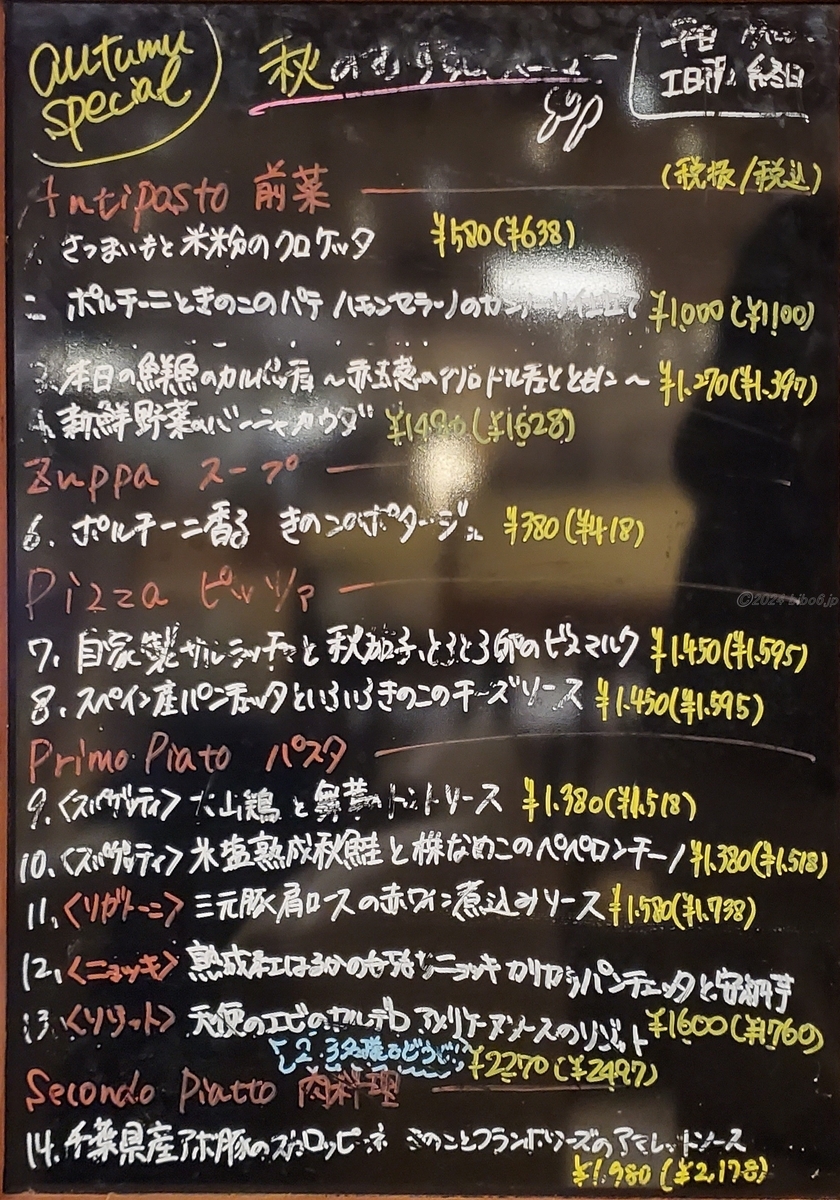 autumn special
秋のおすすめメニュー
平日
土日祝 終日
Antipasto 前菜
(税抜/税込)
さつまいもと米粉のクロケッタ ¥580(¥638)
二 ポルチーニときのこのパテ ¥1,000(¥1,100)
3. 本日の鮮魚のカルパッチョ ~赤玉葱のアグロドルチェとともに~ ¥1.270(¥1.397)
4. 新鮮野菜のバーニャカウダ ¥1480(¥1628)
Zuppa スープ
6. ポルチーニ香る きのこのポタージュ ¥380(¥418)
Pizza ピッツァ
©2024 bibo6.jp
7. 自家製サルシッチャと秋茄子、とろとろ卵のビスマルク ¥1.450(¥1.595)
8. スペイン産パンチェッタといろいろきのこのチーズソース ¥1.450(¥1.595)
Primo Piato パスタ
9. <スパゲッティ> 大山鶏と舞茸 トマトソース ¥1.380(¥1.518)
10. <スパゲッティ> 氷塩熟成秋鮭と株なめこのペペロンチーノ ¥1.380(¥1.518)
11. <リガトーニ> 三元豚肩ロースの赤ワイン煮込みソース ¥1.580(¥1.738)
12. <ニョッキ> 熟成紅はるかの ニョッキ カリカリパンチェッタと安納芋
¥1600(¥1760)
13. <リゾット> 天使のエビのカルデロ アメリケーヌソースのリゾット
2.3名様でどうぞ ¥2270(¥2497)
Secondo Piatto 肉料理
14. 千葉県産アボ豚のスカロッピーネ きのことフランボワーズのアマレットソース
¥1.980(¥2,178)